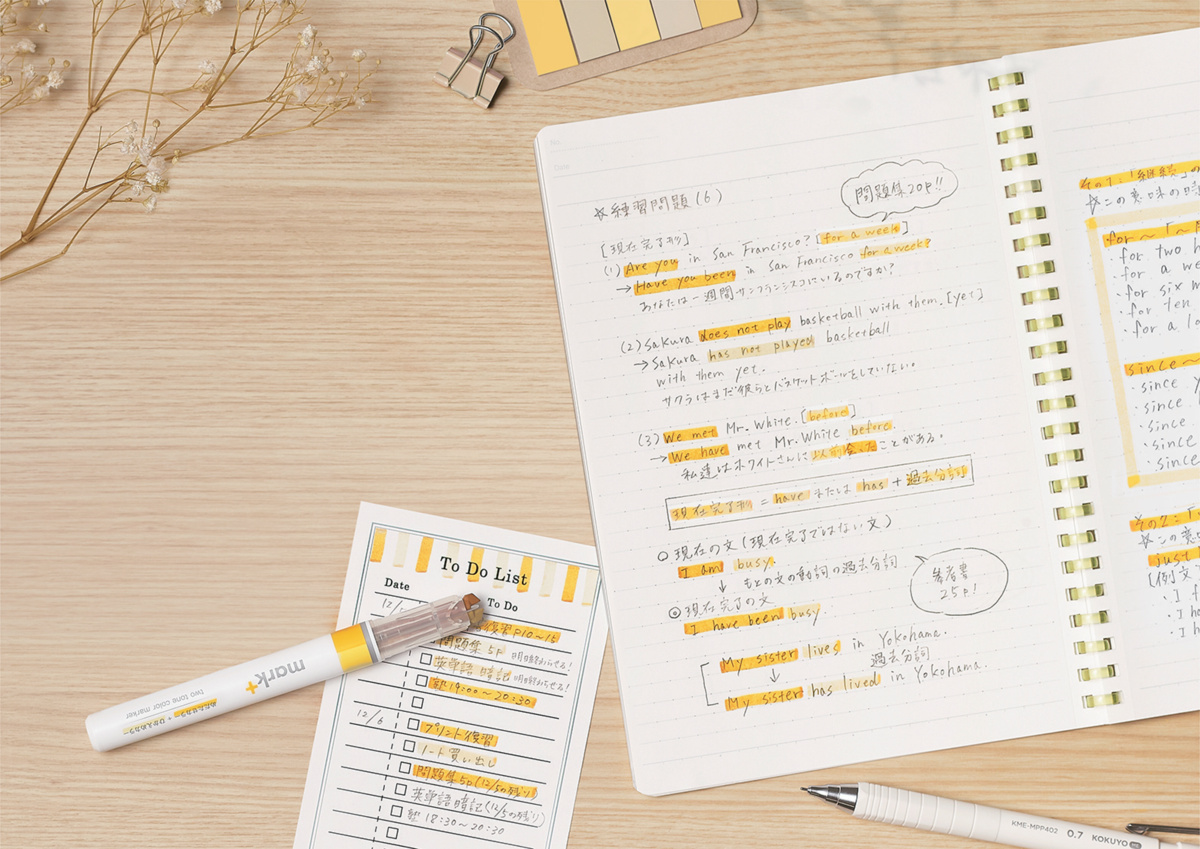 ✲練習問題(6)
問題集20P!!
[現在完了形]
(1) Are you in San Francisco? [for a week]
→Have you been in San Francisco for a week?
あなたは一週間サンフランシスコにいるのですか?
(2) Sakura does not play basketball with them. [yet]
→Sakura has not played basketball
with them yet.
サクラはまだ彼らとバスケットボールをしていない。
(3) We met Mr. White. [before]
→We have met Mr. White before.
私達はホワイトさんに以前会ったことがある。
現在完了形 = have または has + 過去分詞
○現在の文(現在完了ではない文)
I am busy.
↓ もとの文の動詞の過去分詞
◎現在完了の文
I have been busy.
参考書
25P!
My sister lives in Yokohama.
↓ 過去分詞
My sister has lived in Yokohama.
その1:「継続」の
☆この意味の時
for~「~
・for two h
・for a we
・for six m
・for ten
・for a lo
since~
・since y
・since
・since
・since
・since
その2:「
☆この意
just
[例文
・I
・I ha
・I h
To Do List
Date
To Do
12/
復習 P10~15
問題集 5P 明日終わらせる!
英単語 暗記 明日終わらせる!
塾 19:00~20:30
12/6
プリント復習
ノート買い出し
問題集5P(12/5の残り)
英単語暗記(12/5の残り)
塾 18:30~20:30
mark+
two tone color marker
KME-MPP402 0.7 KOKUYO